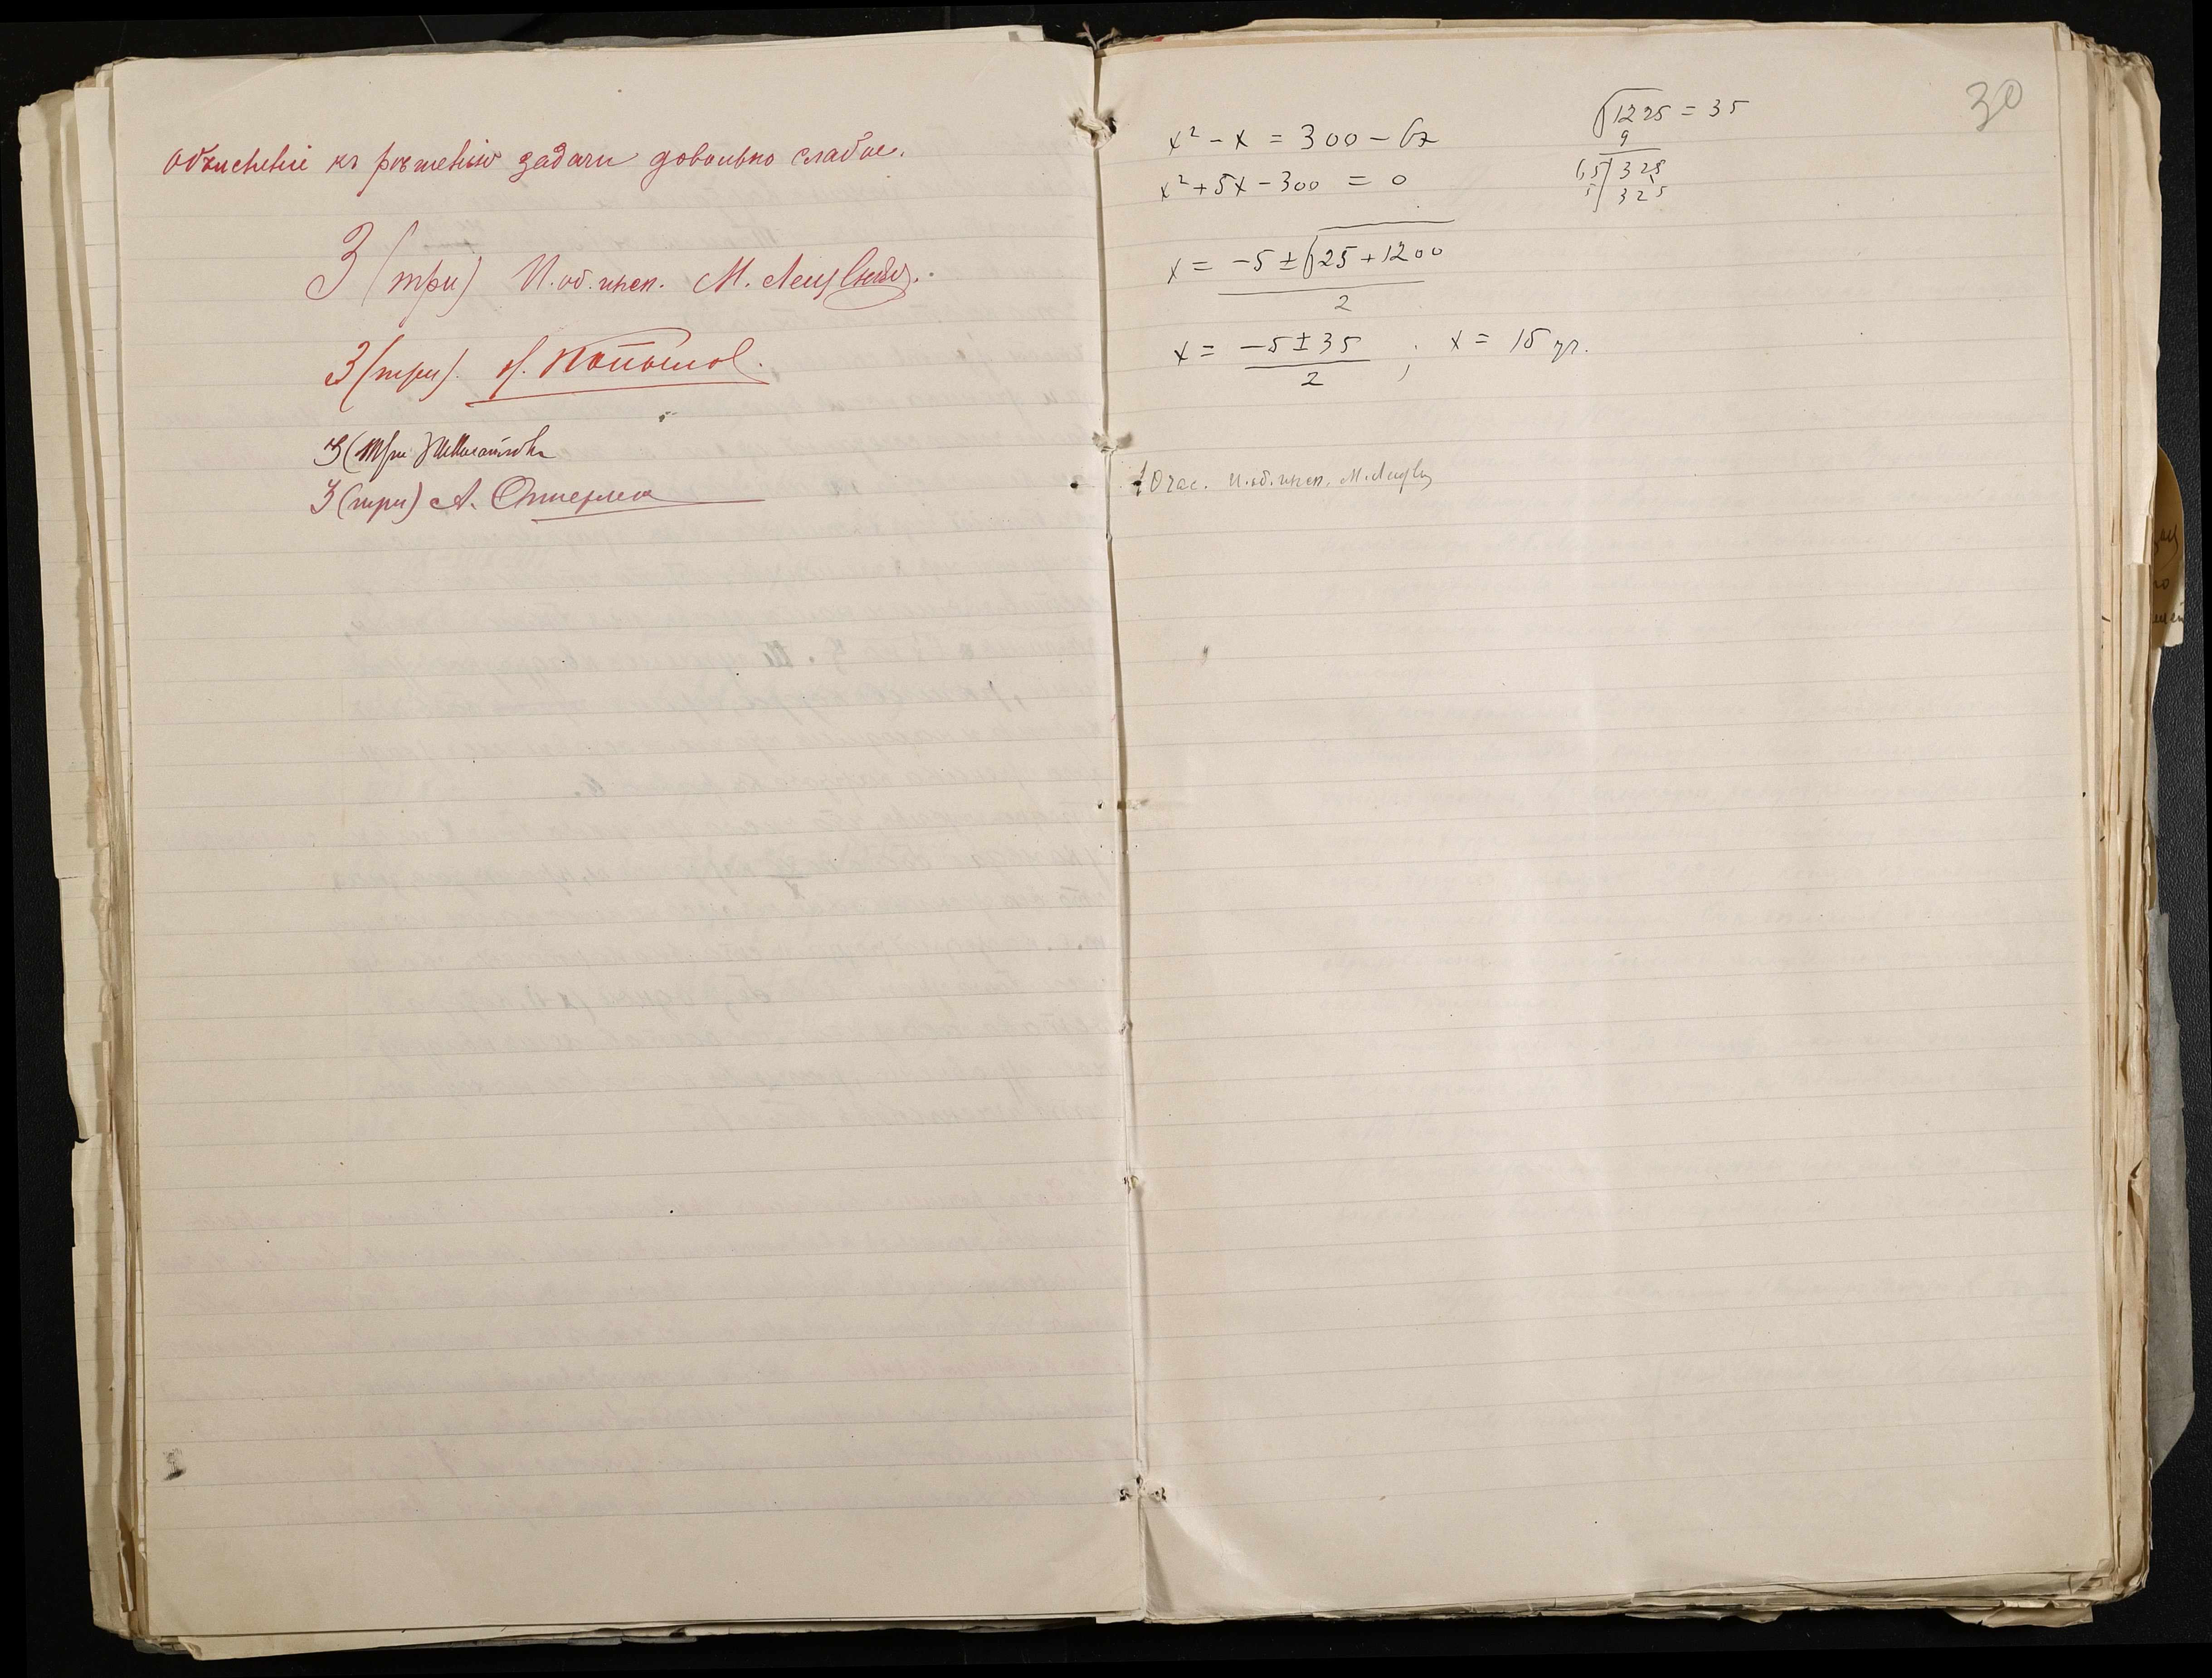 Объясненіе къ рѣшенію задачи довольно слабое.
3 (три) И. об. инсп. М.
3 (три). Копылов.
3 (три)
3 (три) А.
30
x² - x = 300 - 6x
x² + 5x - 300 = 0
x = -5 ± √25 + 1200
2
x = -5 ± 35 ; x = 15 уч.
2
√1225 = 35
9
65 325
5 325
10 час. И. об. инсп. М.